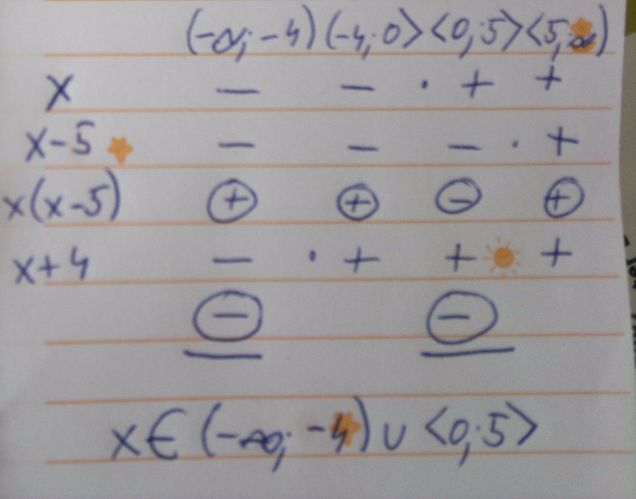 (-∞; -4) (-4; 0> <0; 5> <5; ∞)
x − − · + +
x-5 − − − · +
x(x-5) ⊕ ⊕ ⊖ ⊕
x+4 − · + + +
⊖ ⊖
x∈(-∞; -4) ∪ <0; 5>